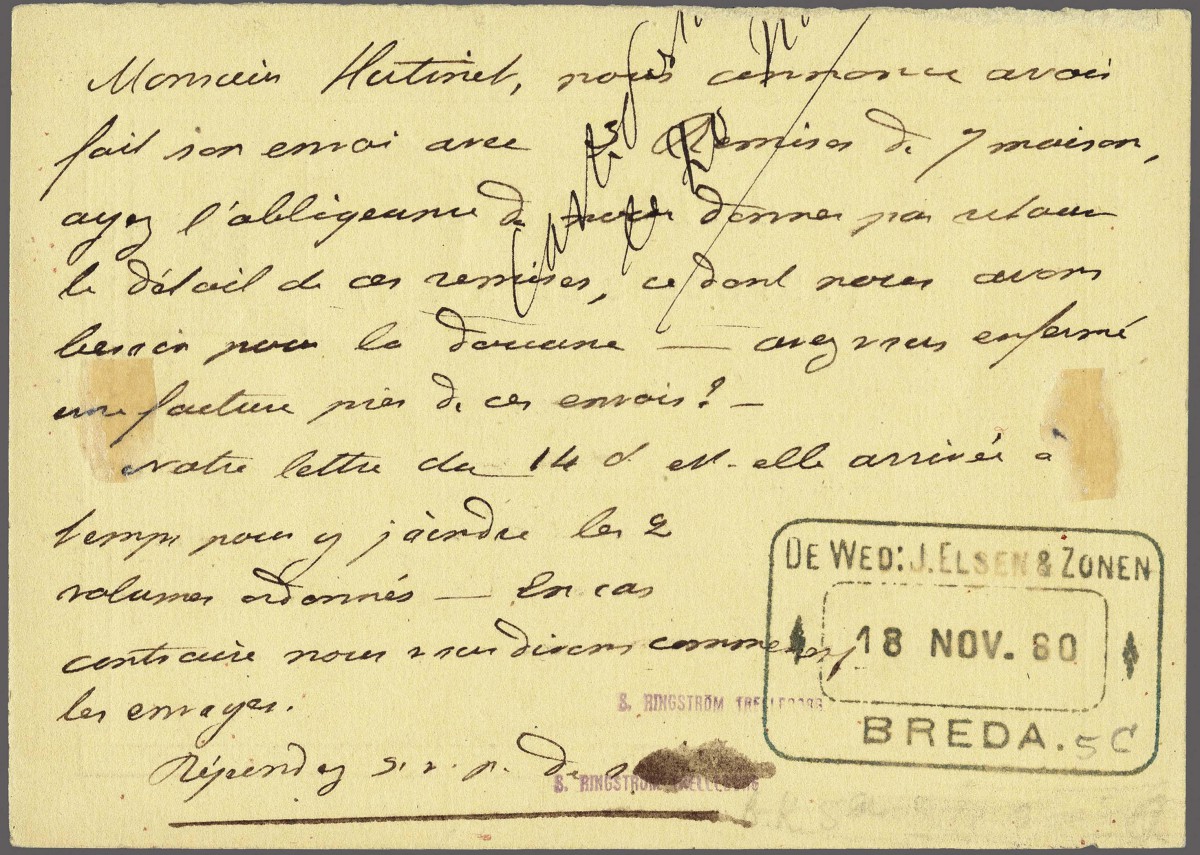 Monsieur Hutinet, nous annonce avoir
fait son envoi avec 3 Remises de 7 maison,
ayez l'obligeance de nous donner par retour
le détail de ces remises, ce dont nous avons
besoin pour la douane — avez vous enfermé
une facture près de ces envois? —
votre lettre du 14 et est-elle arrivée à
temps pour y joindre les 2
volumes ordonnés — En cas
contraire nous vous dirons comment
les envoyer.
Répondez s.v.p. de
DE WED: J. ELSEN & ZONEN
18 NOV. 80
BREDA.
5C
S. RINGSTRÖM TRELLEBORG
S. RINGSTRÖM TRELLEBORG